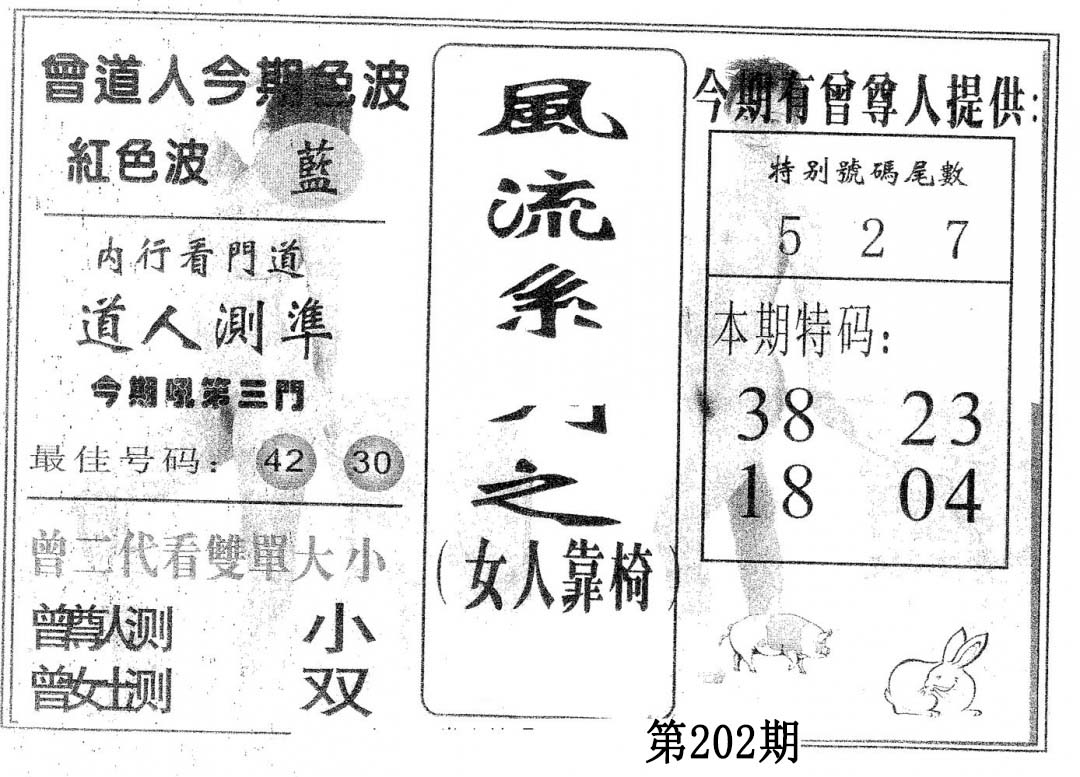 曾道人今期色波
紅色波 藍
内行看門道
道人測準
今期吼第三門
最佳号码： 42 30
曾二代看雙單大小
曾尊人测 小
曾女士测 双
風
流
系
之
(女人靠椅)
今期有曾尊人提供：
特别號碼尾數
5 2 7
本期特码：
38 23
18 04
第202期